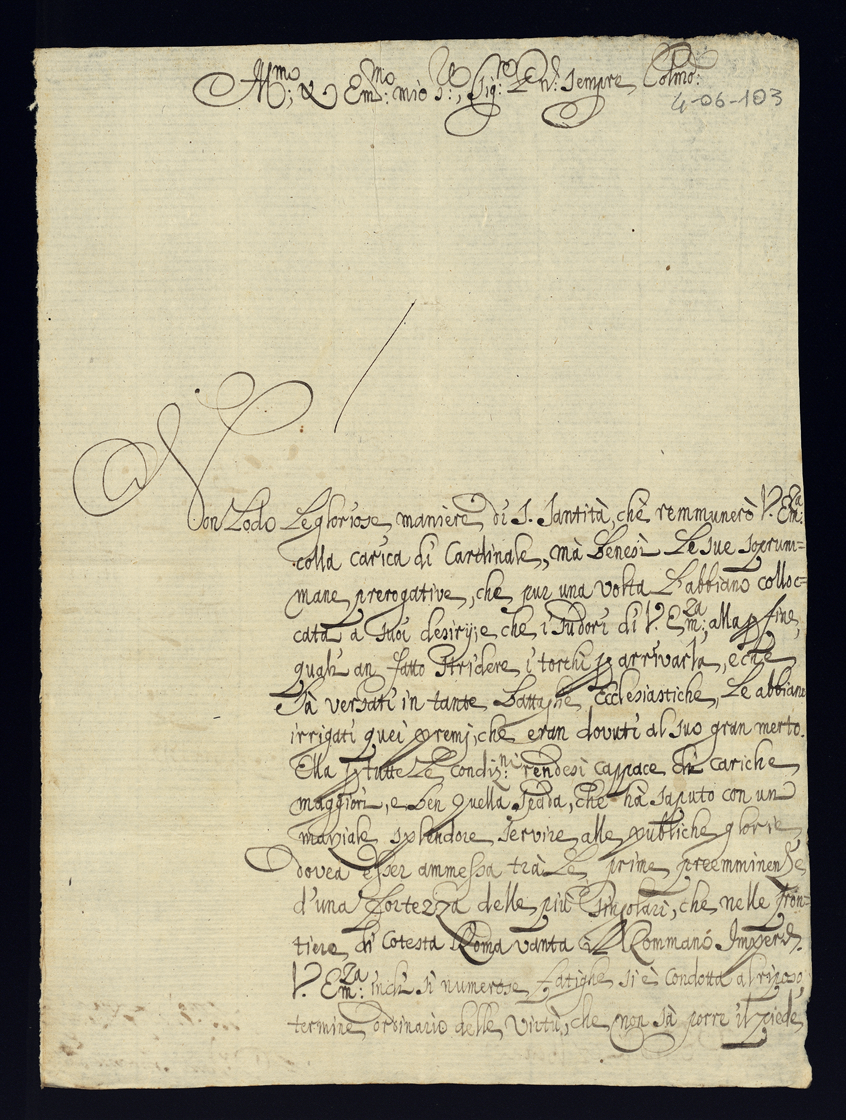 Em:mo mio S:re, Sig:re P.n: sempre Colmo:
4-06-103
Non Lodo Le gloriose maniere di S. Santità, che remmunerò V. Em:za
colla carica di Cardinale, mà Benesì Le sue soprum=
mane prerogative, che pur una volta L'abbiano colloc=
cata a suoi desirij; e che i sudori di V. Em:za; alla p fine,
quali an fatto stridere i torchi p arrivarla, e che
Sà versati in tante Battaglie Ecclesiastiche, Le abbiano
irrigati quei premj, che eran dovuti al suo gran merto.
Ella p tutte Le condiz:ni rendesi cappace di cariche
maggiori, e ben quella Spada, che hà saputo con un
marziale splendore servire alle publiche glorie
dovea esser ammessa trà Le prime preemminenze
d'una Fortezza delle più singolari, che nelle Fron=
tiere di Cotesta Roma vanta il Rommanó Imperò.
V. Em:za indi sì numerose Fatighe si è condotta al riposo,
termine ordinario delle Virtù, che non sà porre il piede